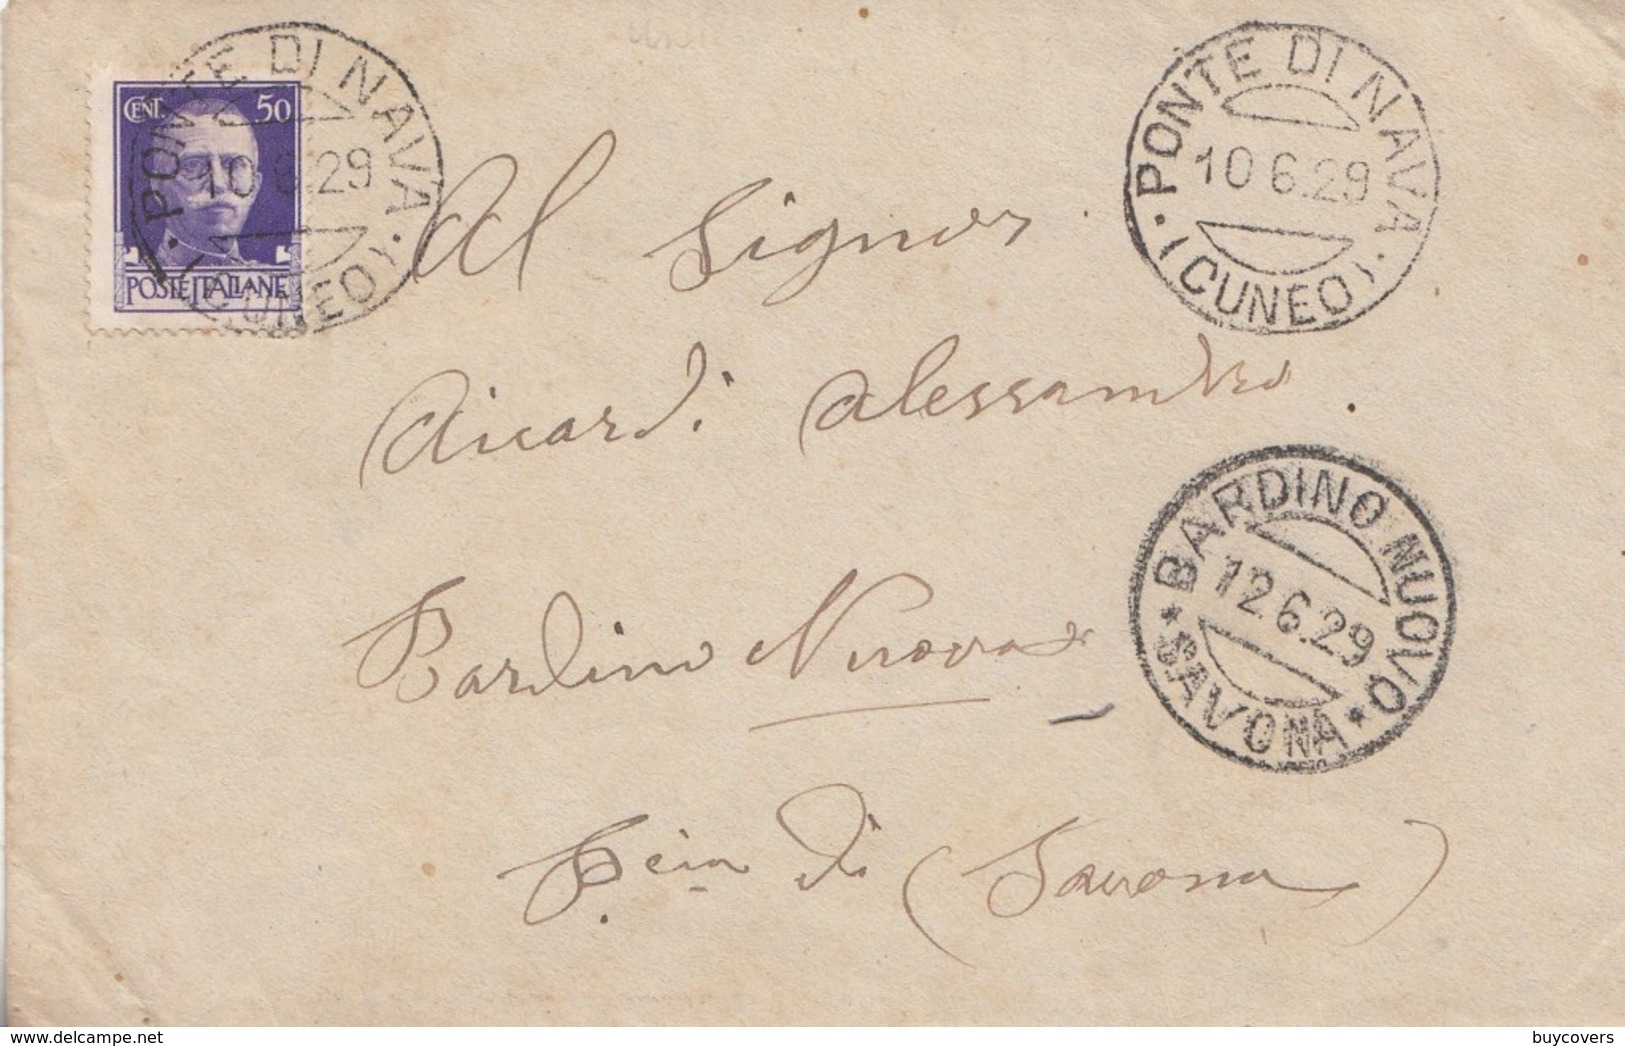 CENT. 50
POSTE ITALIANE
PONTE DI NAVA
10 6.29
(CUNEO)
PONTE DI NAVA
10 6.29
(CUNEO)
Al Signor
Aicardi Alessandro
BARDINO NUOVO
12 6.29
* SAVONA *
Bardino Nuovo
P.cia di (Savona)
buycovers